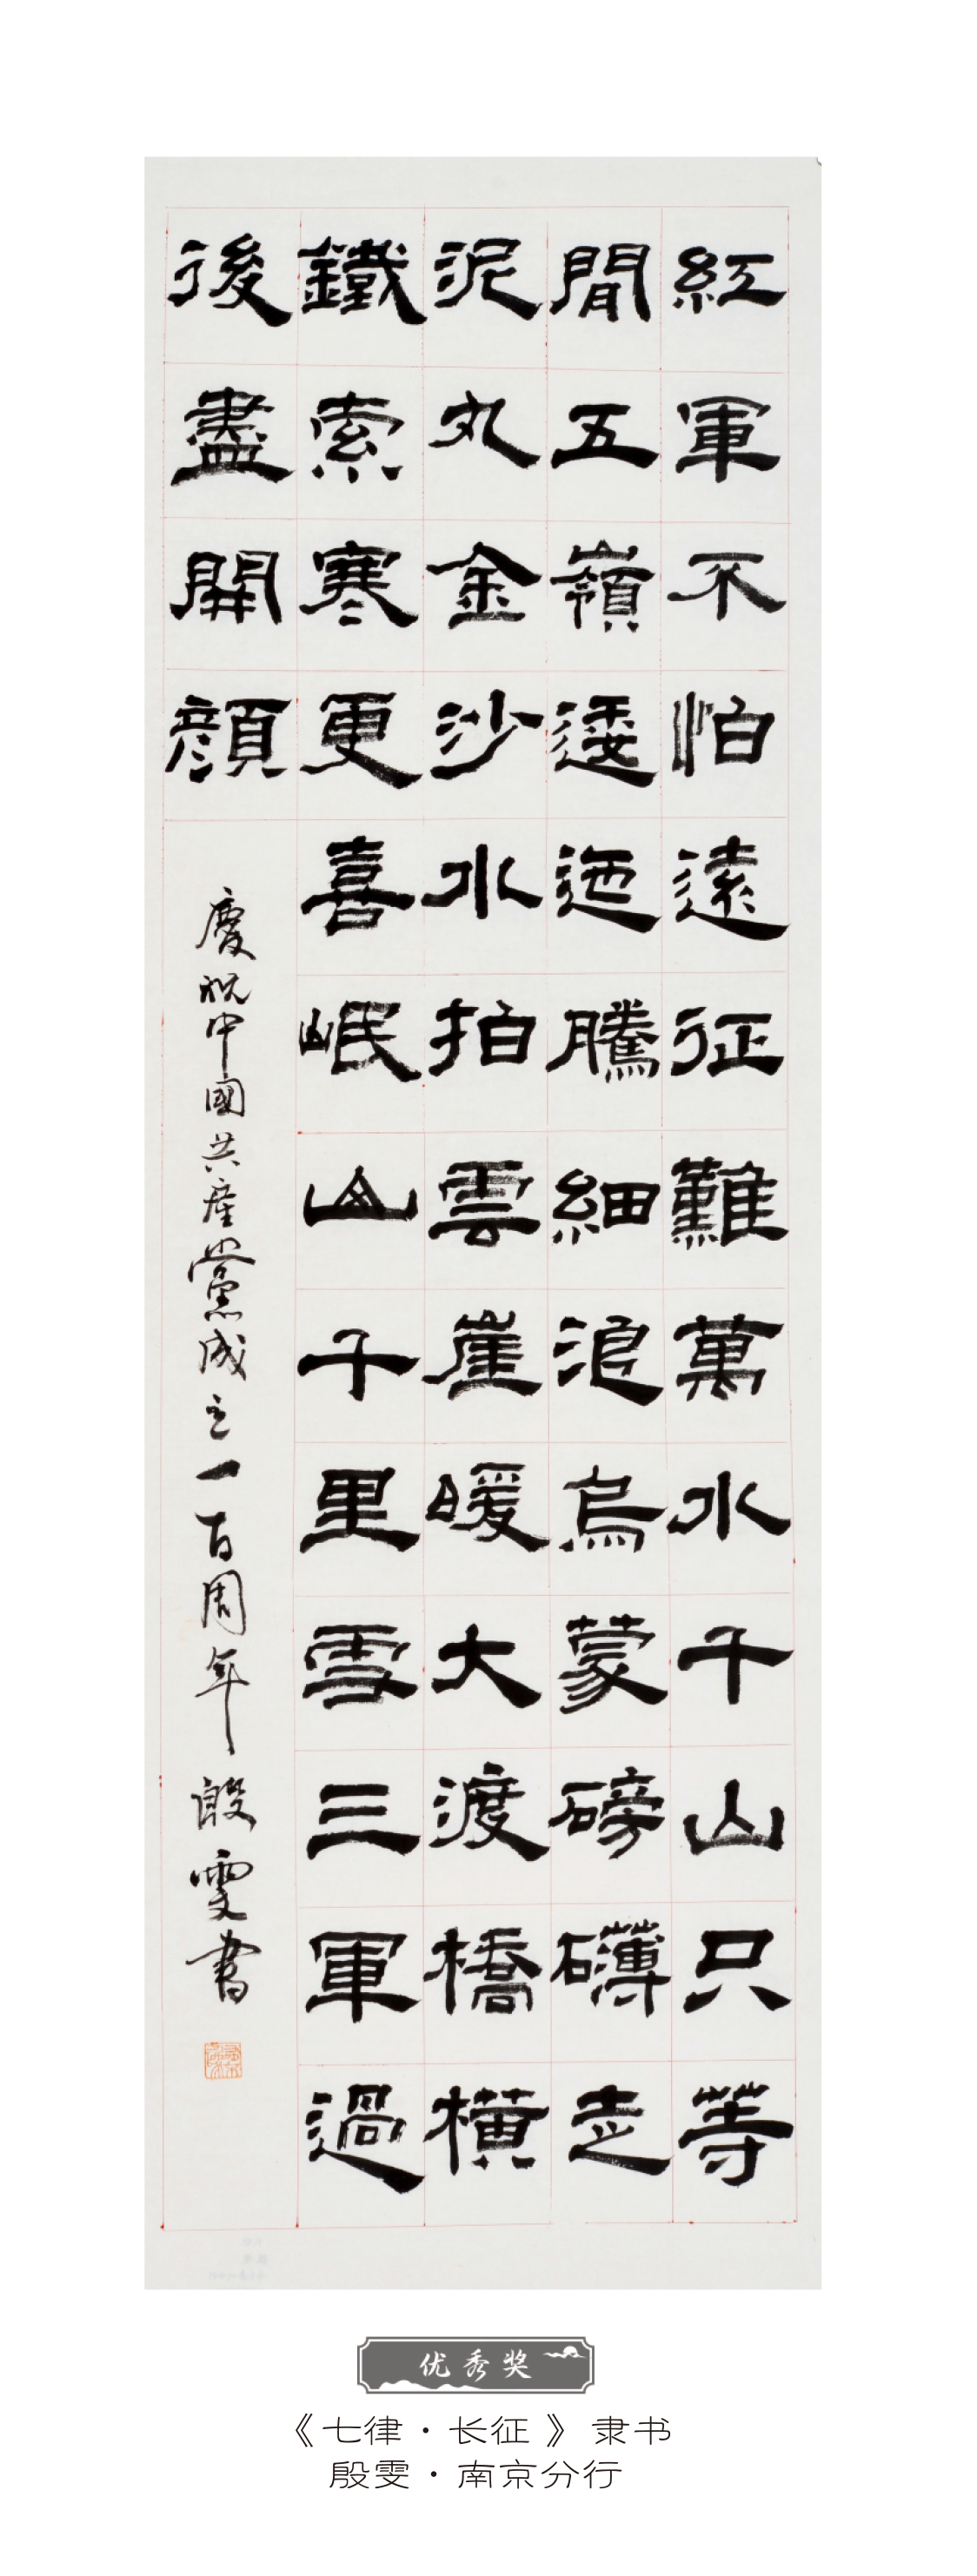 紅軍不怕遠征難萬水千山只等
閒五嶺逶迤騰細浪烏蒙磅礴走
泥丸金沙水拍雲崖暖大渡橋橫
鐵索寒更喜岷山千里雪三軍過
後盡開顏
慶祝中國共產黨成立一百周年 殷雯書
优秀奖
《七律·长征》隶书
殷雯·南京分行